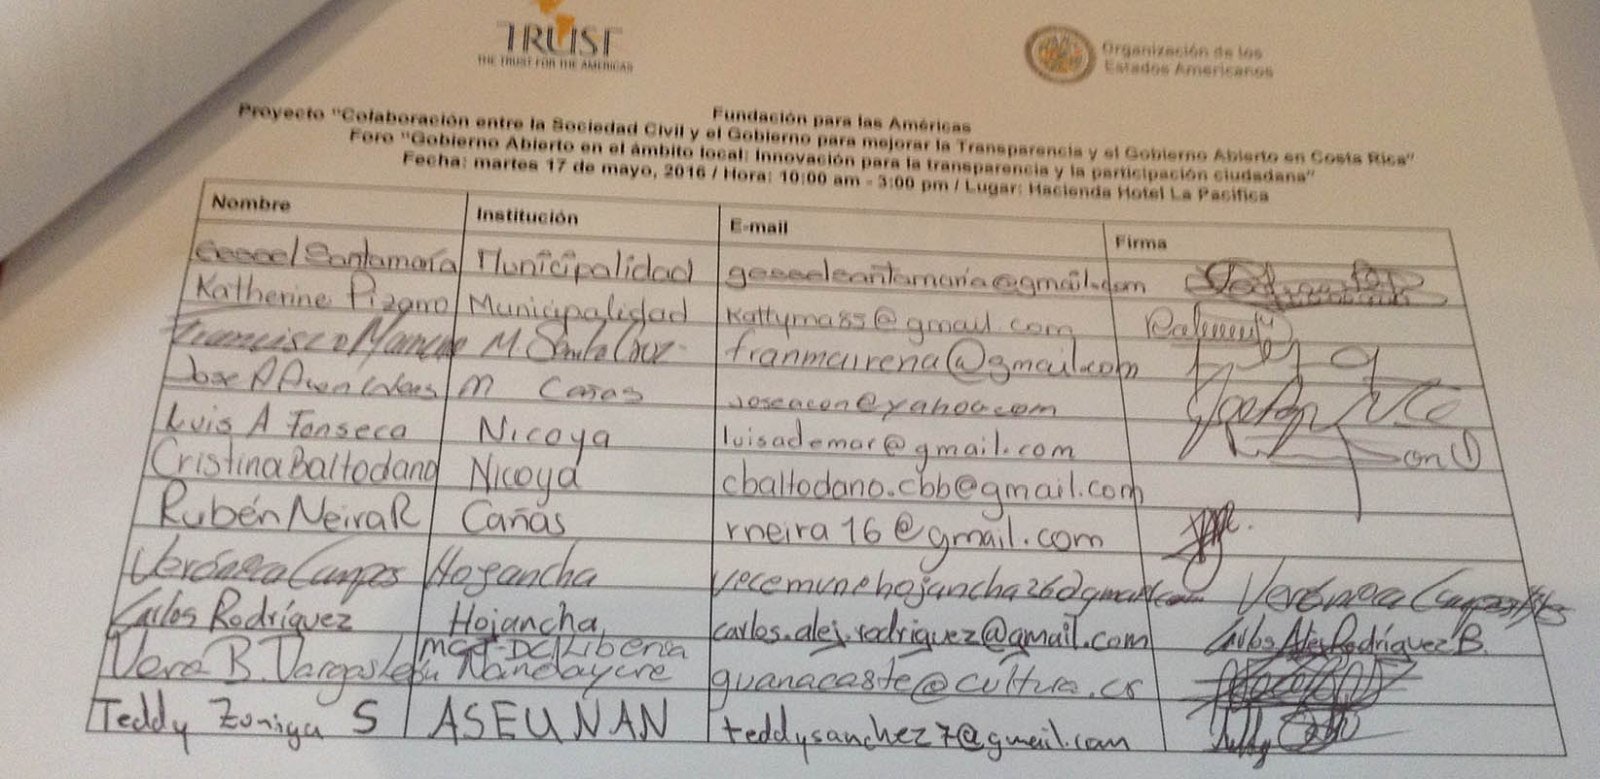 TRUST
THE TRUST FOR THE AMERICAS
Organización de los
Estados Americanos
Fundación para las Américas
Proyecto "Colaboración entre la Sociedad Civil y el Gobierno para mejorar la Transparencia y el Gobierno Abierto en Costa Rica"
Foro "Gobierno Abierto en el ámbito local: Innovación para la transparencia y la participación ciudadana"
Fecha: martes 17 de mayo, 2016 / Hora: 10:00 am - 3:00 pm / Lugar: Hacienda Hotel La Pacífica
Nombre Institución E-mail Firma
Santamaría Municipalidad
Katherine Pizarro Municipalidad kattyma85@gmail.com
Francisco M. Santa Cruz franmairena@gmail.com
Jose A M Cañas joseacon@yahoo.com
Luis A Fonseca Nicoya luisademar@gmail.com
Cristina Baltodano Nicoya cbaltodano.cbb@gmail.com
Rubén Neira R Cañas rneira16@gmail.com
Verónica Campos Hojancha Verónica Campos
Carlos Rodríguez Hojancha carlos.alej.rodriguez@gmail.com Carlos Alej Rodríguez B.
Vera B. Vargas León Liberia Nandayure guanacaste@cultura.cr
Teddy Zuniga S ASEUNAN teddysanchez7@gmail.com